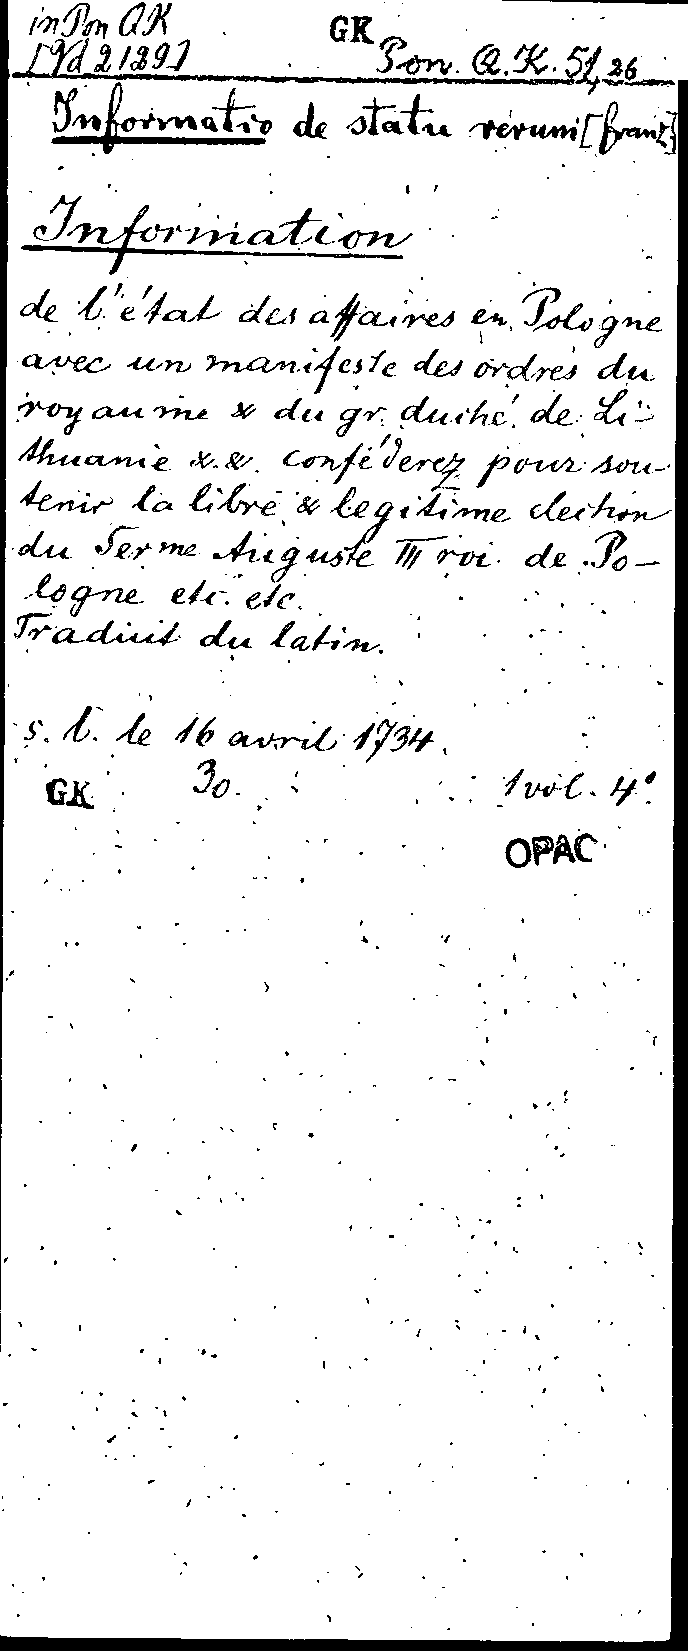 in Pon QK
[Yd 2 1291
GK
Pon. Q. K. 51, 26
Informatio de statu rerum [franz]
Information
de l'état des affaires en Pologne
avec un manifeste des ordres du
royaume & du gr. duché de Li-
thuanie &.&. conféderez pour sou-
tenir la libre & legitime election
du Serme Auguste III roi de Po-
logne etc. etc.
Traduit du latin.
s. l. le 16 avril 1734.
GK 30. 1 vol. 4°
OPAC